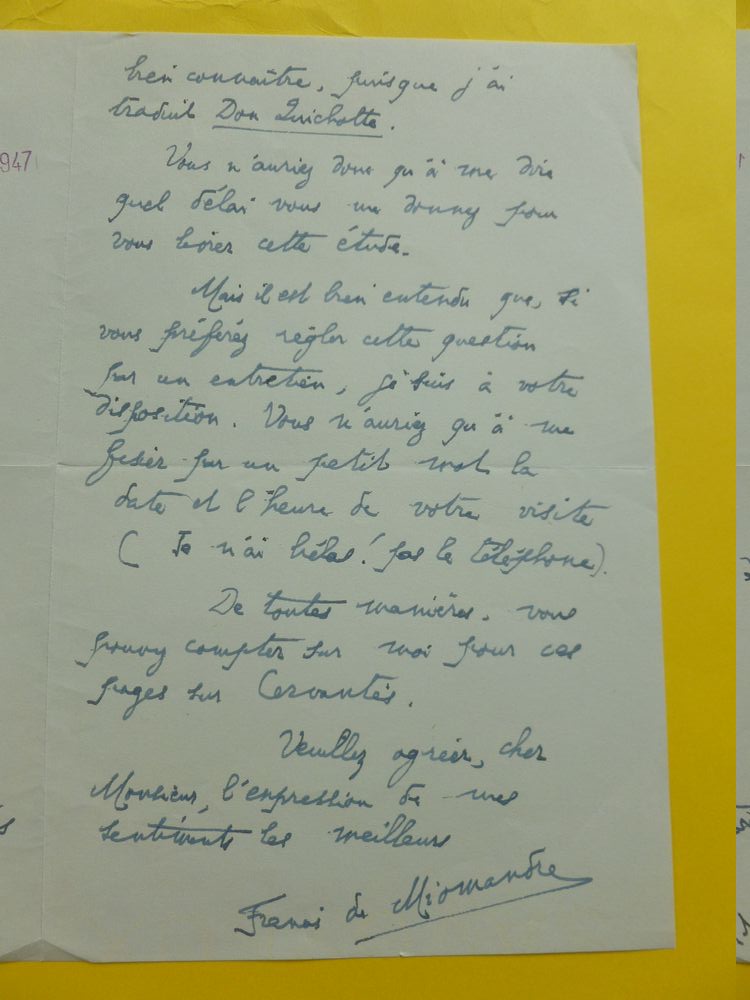 bien connaître, puisque j'ai
traduit Don Quichotte.
947
Vous n'auriez donc qu'à me dire
quel délai vous me donnez pour
vous livrer cette étude.
Mais il est bien entendu que, si
vous préférez régler cette question
par un entretien, je suis à votre
disposition. Vous n'auriez qu'à me
fixer par un petit mot la
date et l'heure de votre visite
( Je n'ai hélas! pas le téléphone).
De toutes manières, vous
pouvez compter sur moi pour ces
pages sur Cervantès.
Veuillez agréer, cher
Monsieur, l'expression de mes
sentiments les meilleurs
Francis de Miomandre